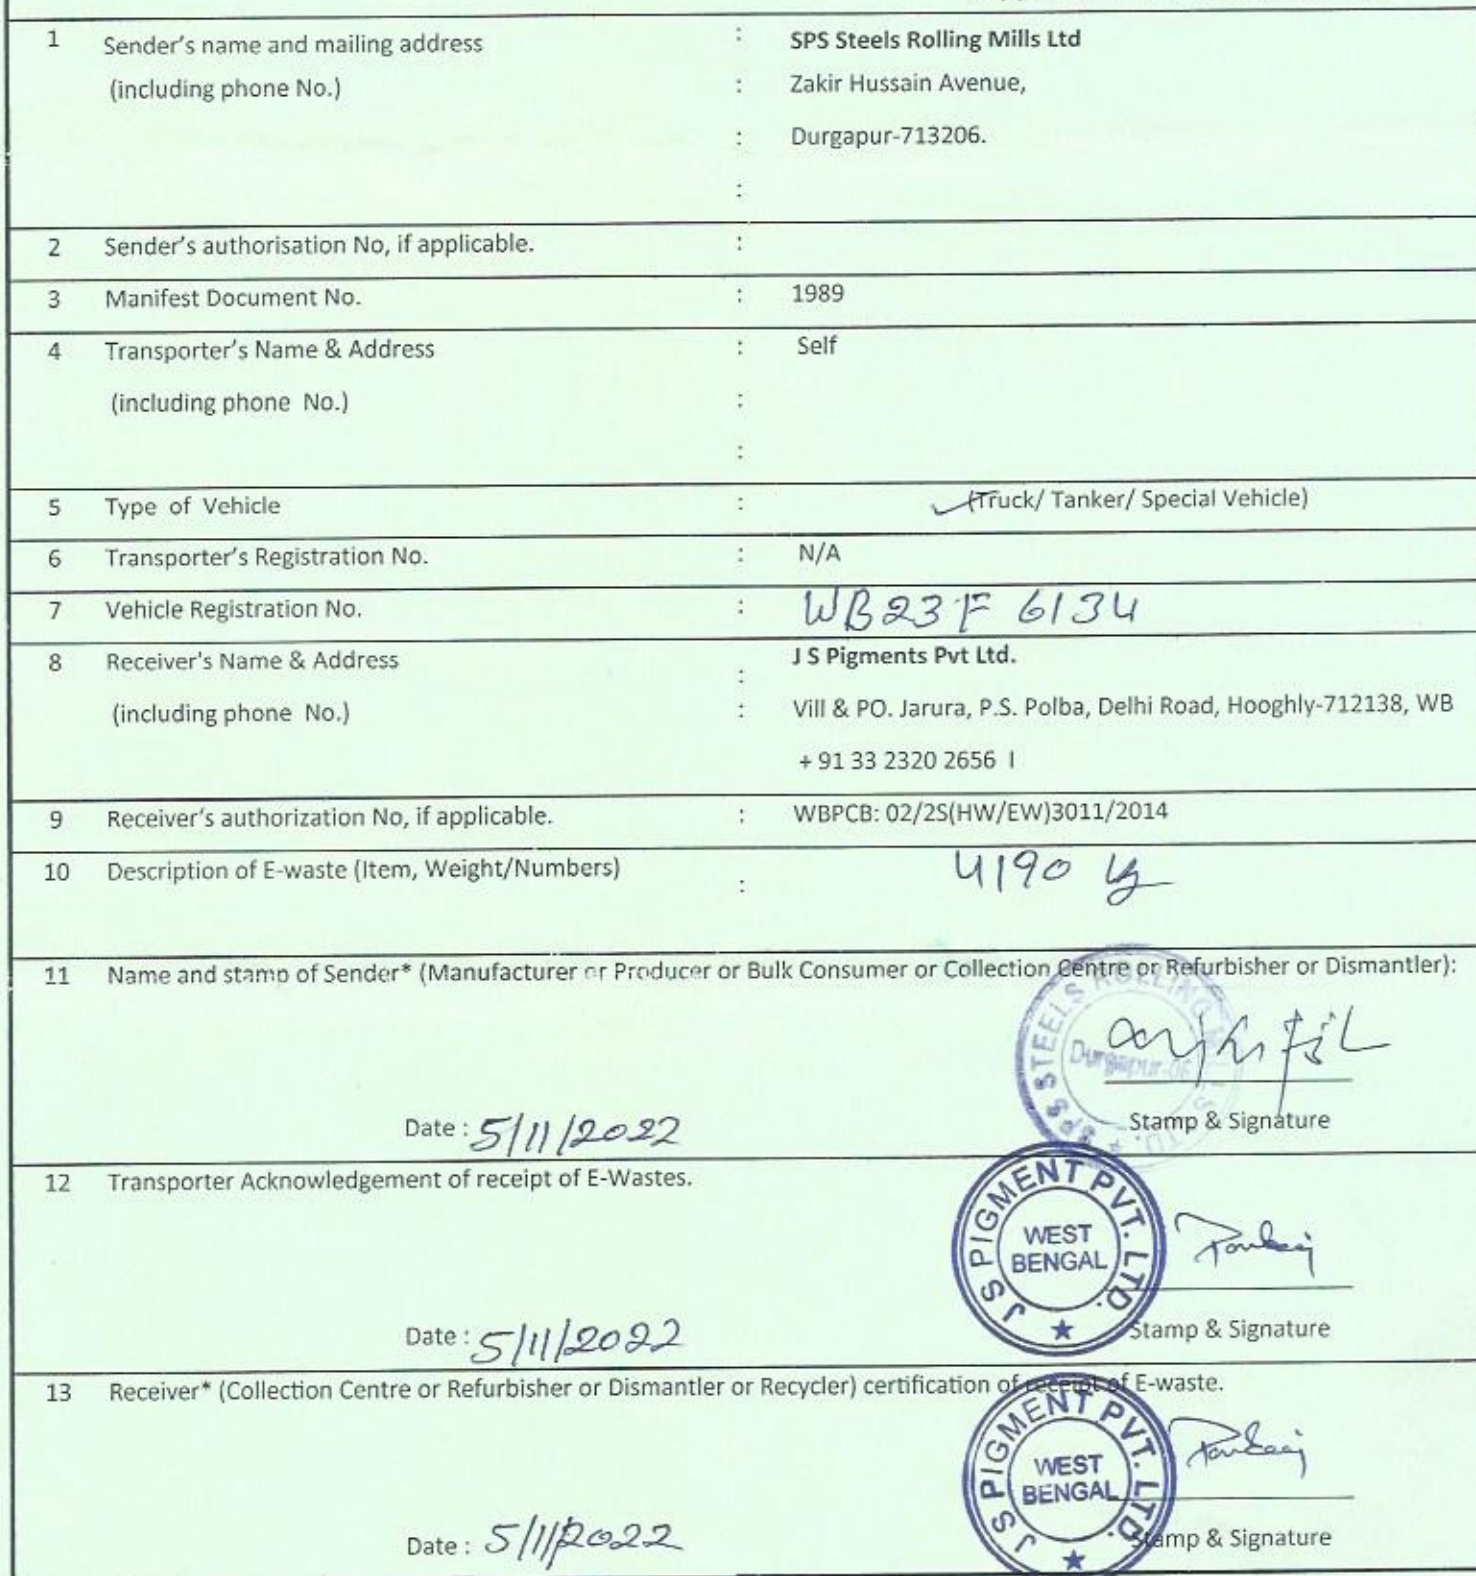 1 Sender's name and mailing address : SPS Steels Rolling Mills Ltd
(including phone No.) : Zakir Hussain Avenue,
: Durgapur-713206.
:
2 Sender's authorisation No, if applicable. :
3 Manifest Document No. : 1989
4 Transporter's Name & Address : Self
(including phone No.) :
:
5 Type of Vehicle : (Truck/ Tanker/ Special Vehicle)
6 Transporter's Registration No. : N/A
7 Vehicle Registration No. : WB23F 6134
8 Receiver's Name & Address : J S Pigments Pvt Ltd.
(including phone No.) : Vill & PO. Jarura, P.S. Polba, Delhi Road, Hooghly-712138, WB
+ 91 33 2320 2656 I
9 Receiver's authorization No, if applicable. : WBPCB: 02/2S(HW/EW)3011/2014
10 Description of E-waste (Item, Weight/Numbers) : 4190 kg
11 Name and stamp of Sender* (Manufacturer or Producer or Bulk Consumer or Collection Centre or Refurbisher or Dismantler):
SPS STEELS ROLLING
Durgapur-06
LTD.
Date : 5/11/2022 Stamp & Signature
12 Transporter Acknowledgement of receipt of E-Wastes.
J S PIGMENT PVT. LTD.
WEST
BENGAL
Pankaj
Date : 5/11/2022 Stamp & Signature
13 Receiver* (Collection Centre or Refurbisher or Dismantler or Recycler) certification of receipt of E-waste.
J S PIGMENT PVT. LTD.
WEST
BENGAL
Pankaj
Date : 5/11/2022 Stamp & Signature